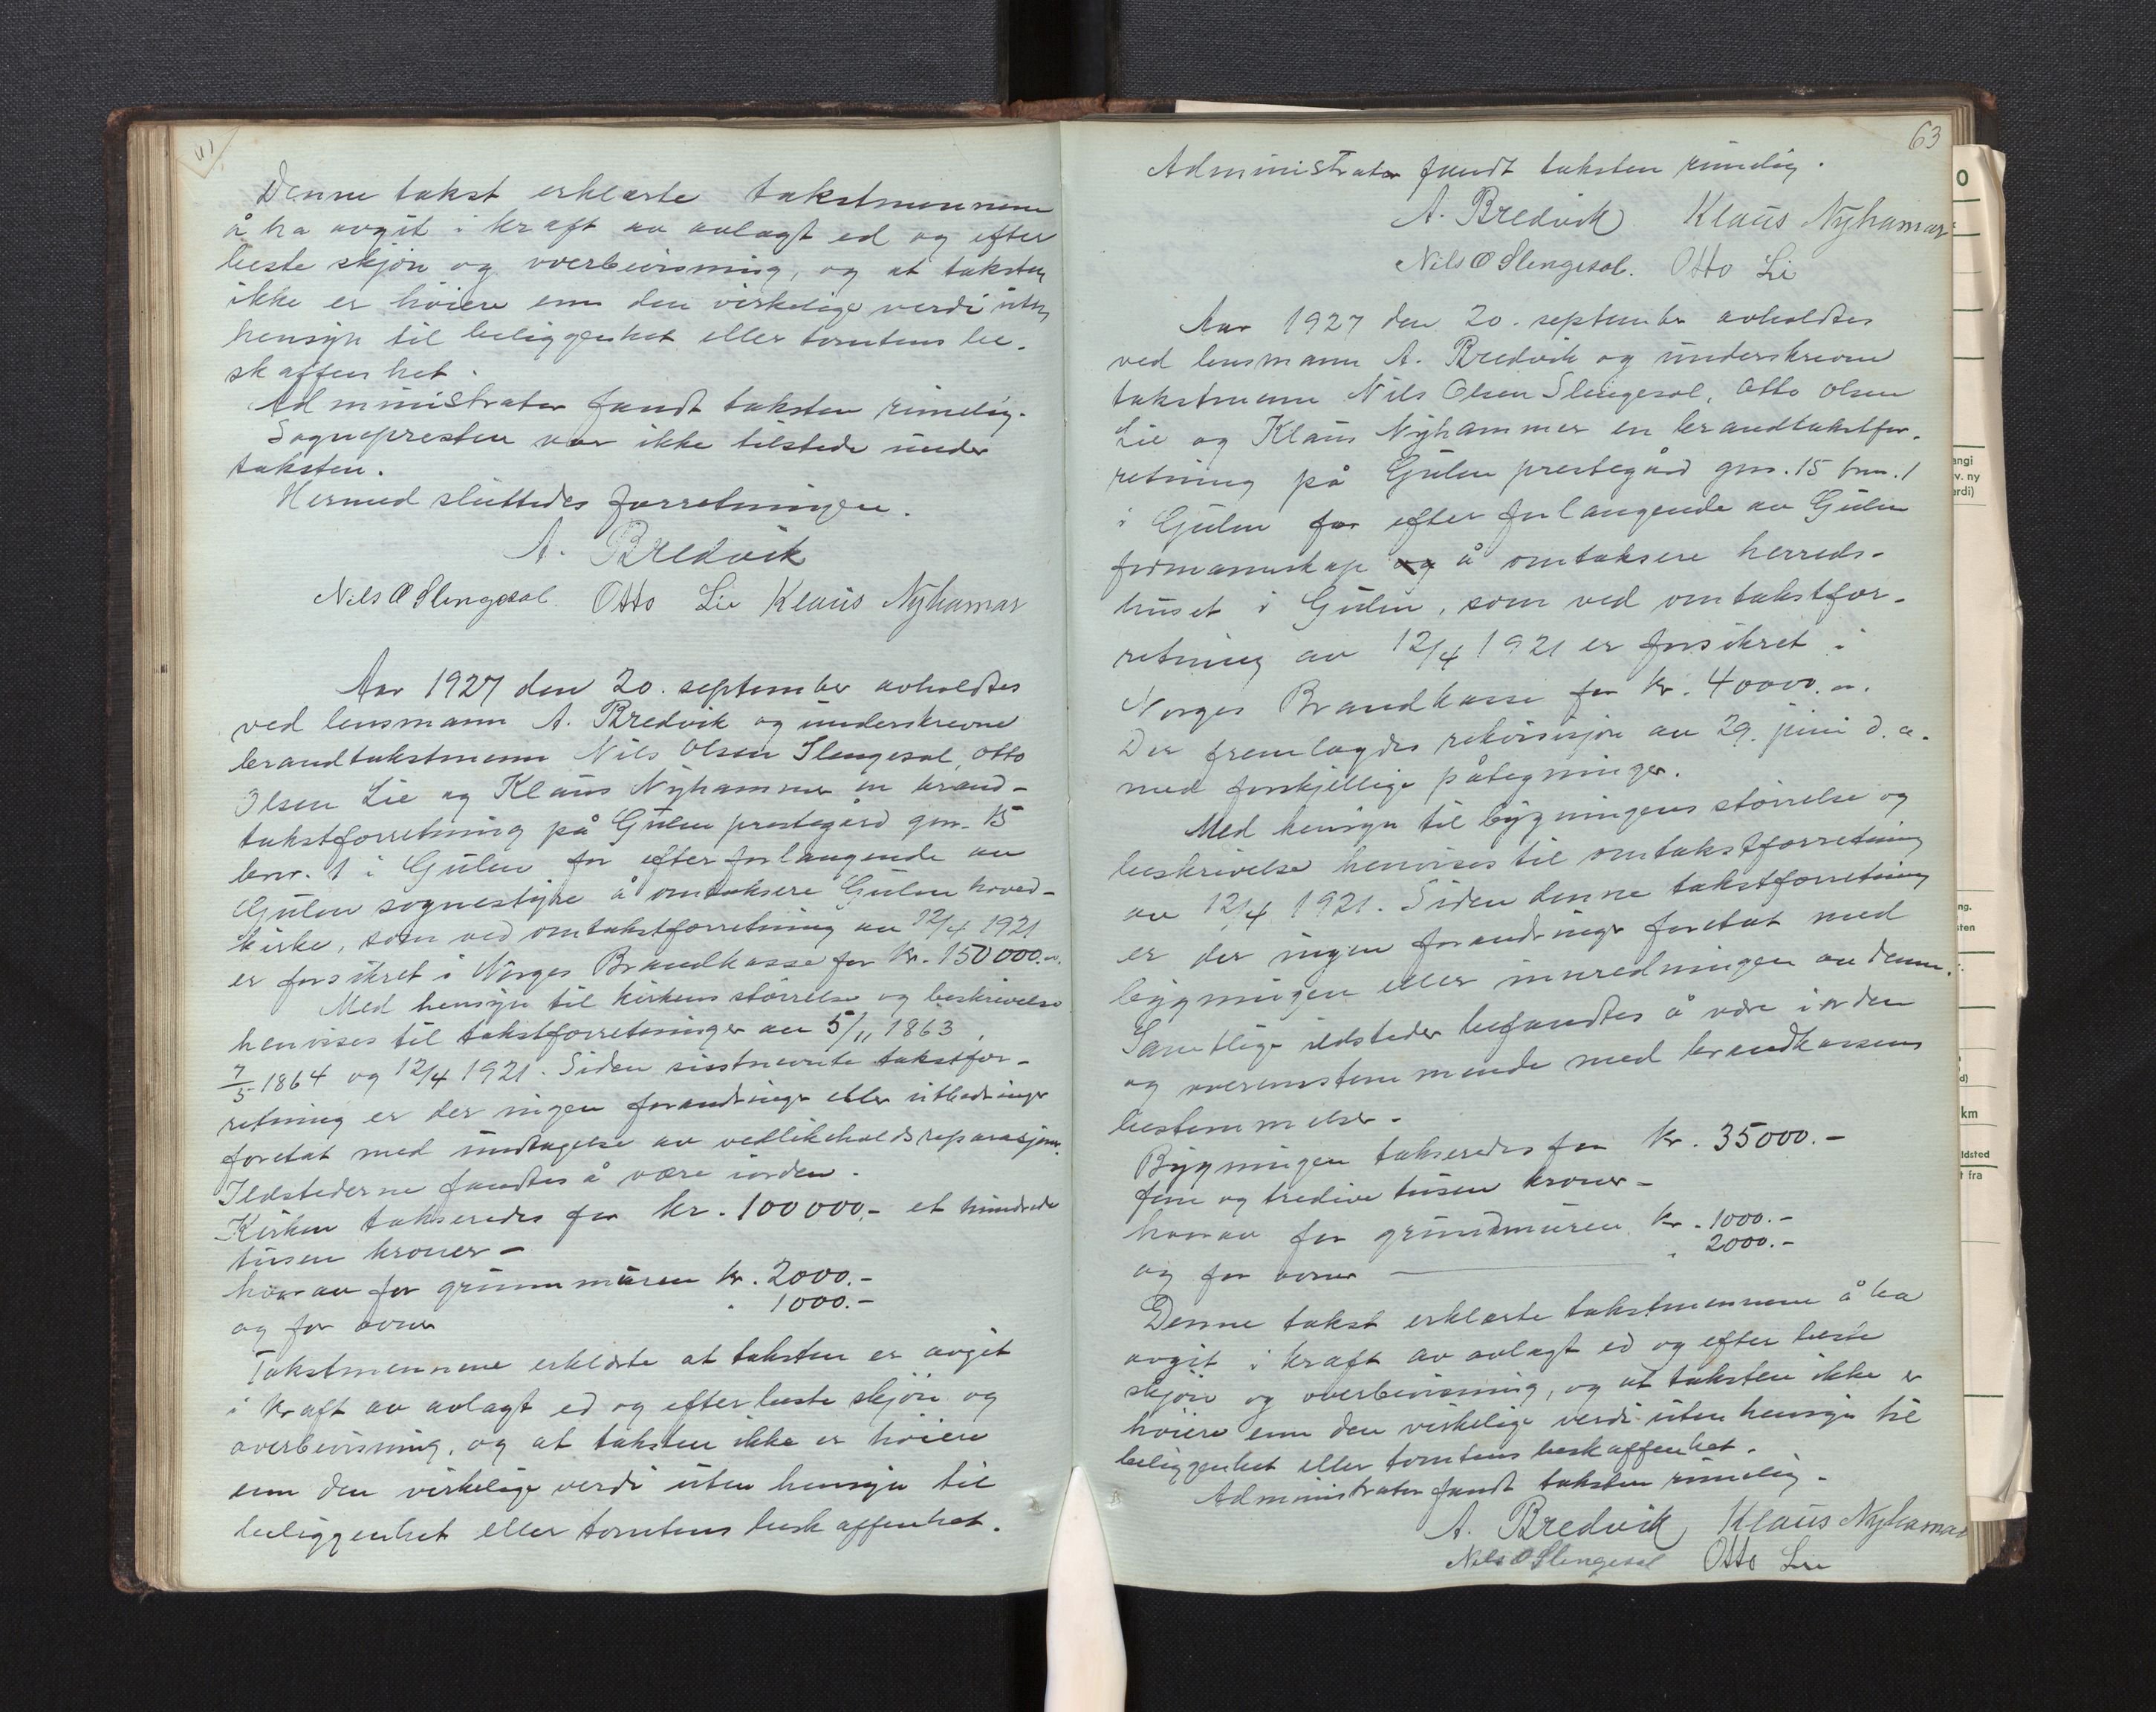 Denne takst erklærte takstmennene
å ha avgit i kraft av avlagt ed og efter
beste skjøn og overbevisning, og at taksten
ikke er høiere enn den virkelige verdi uten
hensyn til beliggenhet eller tomtens be-
skaffenhet.
Administrator fandt taksten rimelig.
Sognepresten var ikke tilstede under
taksten.
Hermed sluttedes forretningen.
A. Bredvik
Nils O Slengesol. Otto Lie Klaus Nyhamar
Aar 1927 den 20. september avholdtes
ved lensmann A. Bredvik og underskrevne
brandtakstmenn Nils Olsen Slengesol, Otto
Olsen Lie og Klaus Nyhammer en brand-
takstforretning på Gulen prestegård gnr. 15
bnr. 1 i Gulen for efter forlangende av
Gulen sognestyre å omtaksere Gulen hoved-
kirke, som ved omtakstforretning av 12/4 1921
er forsikret i Norges Brandkasse for kr. 150000.-
Med hensyn til kirkens størrelse og beskrivelse
henvises til takstforretninger av 5/11 1863,
7/5 1864 og 12/4 1921. Siden sistnevnte takstfor-
retning er der ingen forandringer eller utbedringer
foretat med undtagelse av vedlikeholdsreparasjoner.
Ildstederne fandtes å være iorden.
Kirken takseredes for kr. 100000,- et hundrede
tusen kroner -
hvorav for grunnmuren kr. 2000.-
og for ovner " 1000.-
Takstmennene erklærte at taksten er avgit
i kraft av avlagt ed og efter beste skjøn og
overbevisning, og at taksten ikke er høiere
enn den virkelige verdi uten hensyn til
beliggenhet eller tomtens beskaffenhet.
63
Administrator fandt taksten rimelig.
A. Bredvik Klaus Nyhamar
Nils O Slengesol. Otto Li
Aar 1927 den 20. september avholdtes
ved lensmann A. Bredvik og underskrevne
takstmenn Nils Olsen Slengesol, Otto Olsen
Lie og Klaus Nyhammer en brandtakstfor-
retning på Gulen prestegård gnr. 15 bnr. 1
i Gulen for efter forlangende av Gulen
formannskap og å omtaksere herreds-
huset i Gulen, som ved omtakstfor-
retning av 12/4 1921 er forsikret i
Norges Brandkasse for kr. 40000.-.
Der fremlagdes rekvisisjon av 29. juni d.a.
med forskjellige påtegninger.
Med hensyn til bygningens størrelse og
beskrivelse henvises til omtakstforretning
av 12/4 1921. Siden denne takstforretning
er der ingen forandringer foretat med
bygningen eller innredningen av denne.
Samtlige ildsteder befandtes å være iorden
og overenstemmende med brandkassens
bestemmelser.
Bygningen takseredes for kr. 35000.-
fem og tredive tusen kroner -
hvorav for grundmuren kr. 1000.-
og for ovner " 2000.-
Denne takst erklærte takstmennene å ha
avgit i kraft av avlagt ed og efter beste
skjøn og overbevisning, og at taksten ikke er
høiere enn den virkelige verdi uten hensyn til
beliggenhet eller tomtens beskaffenhet.
Administrator fandt taksten rimelig.
A. Bredvik Klaus Nyhamar
Nils O Slengesol Otto Lie